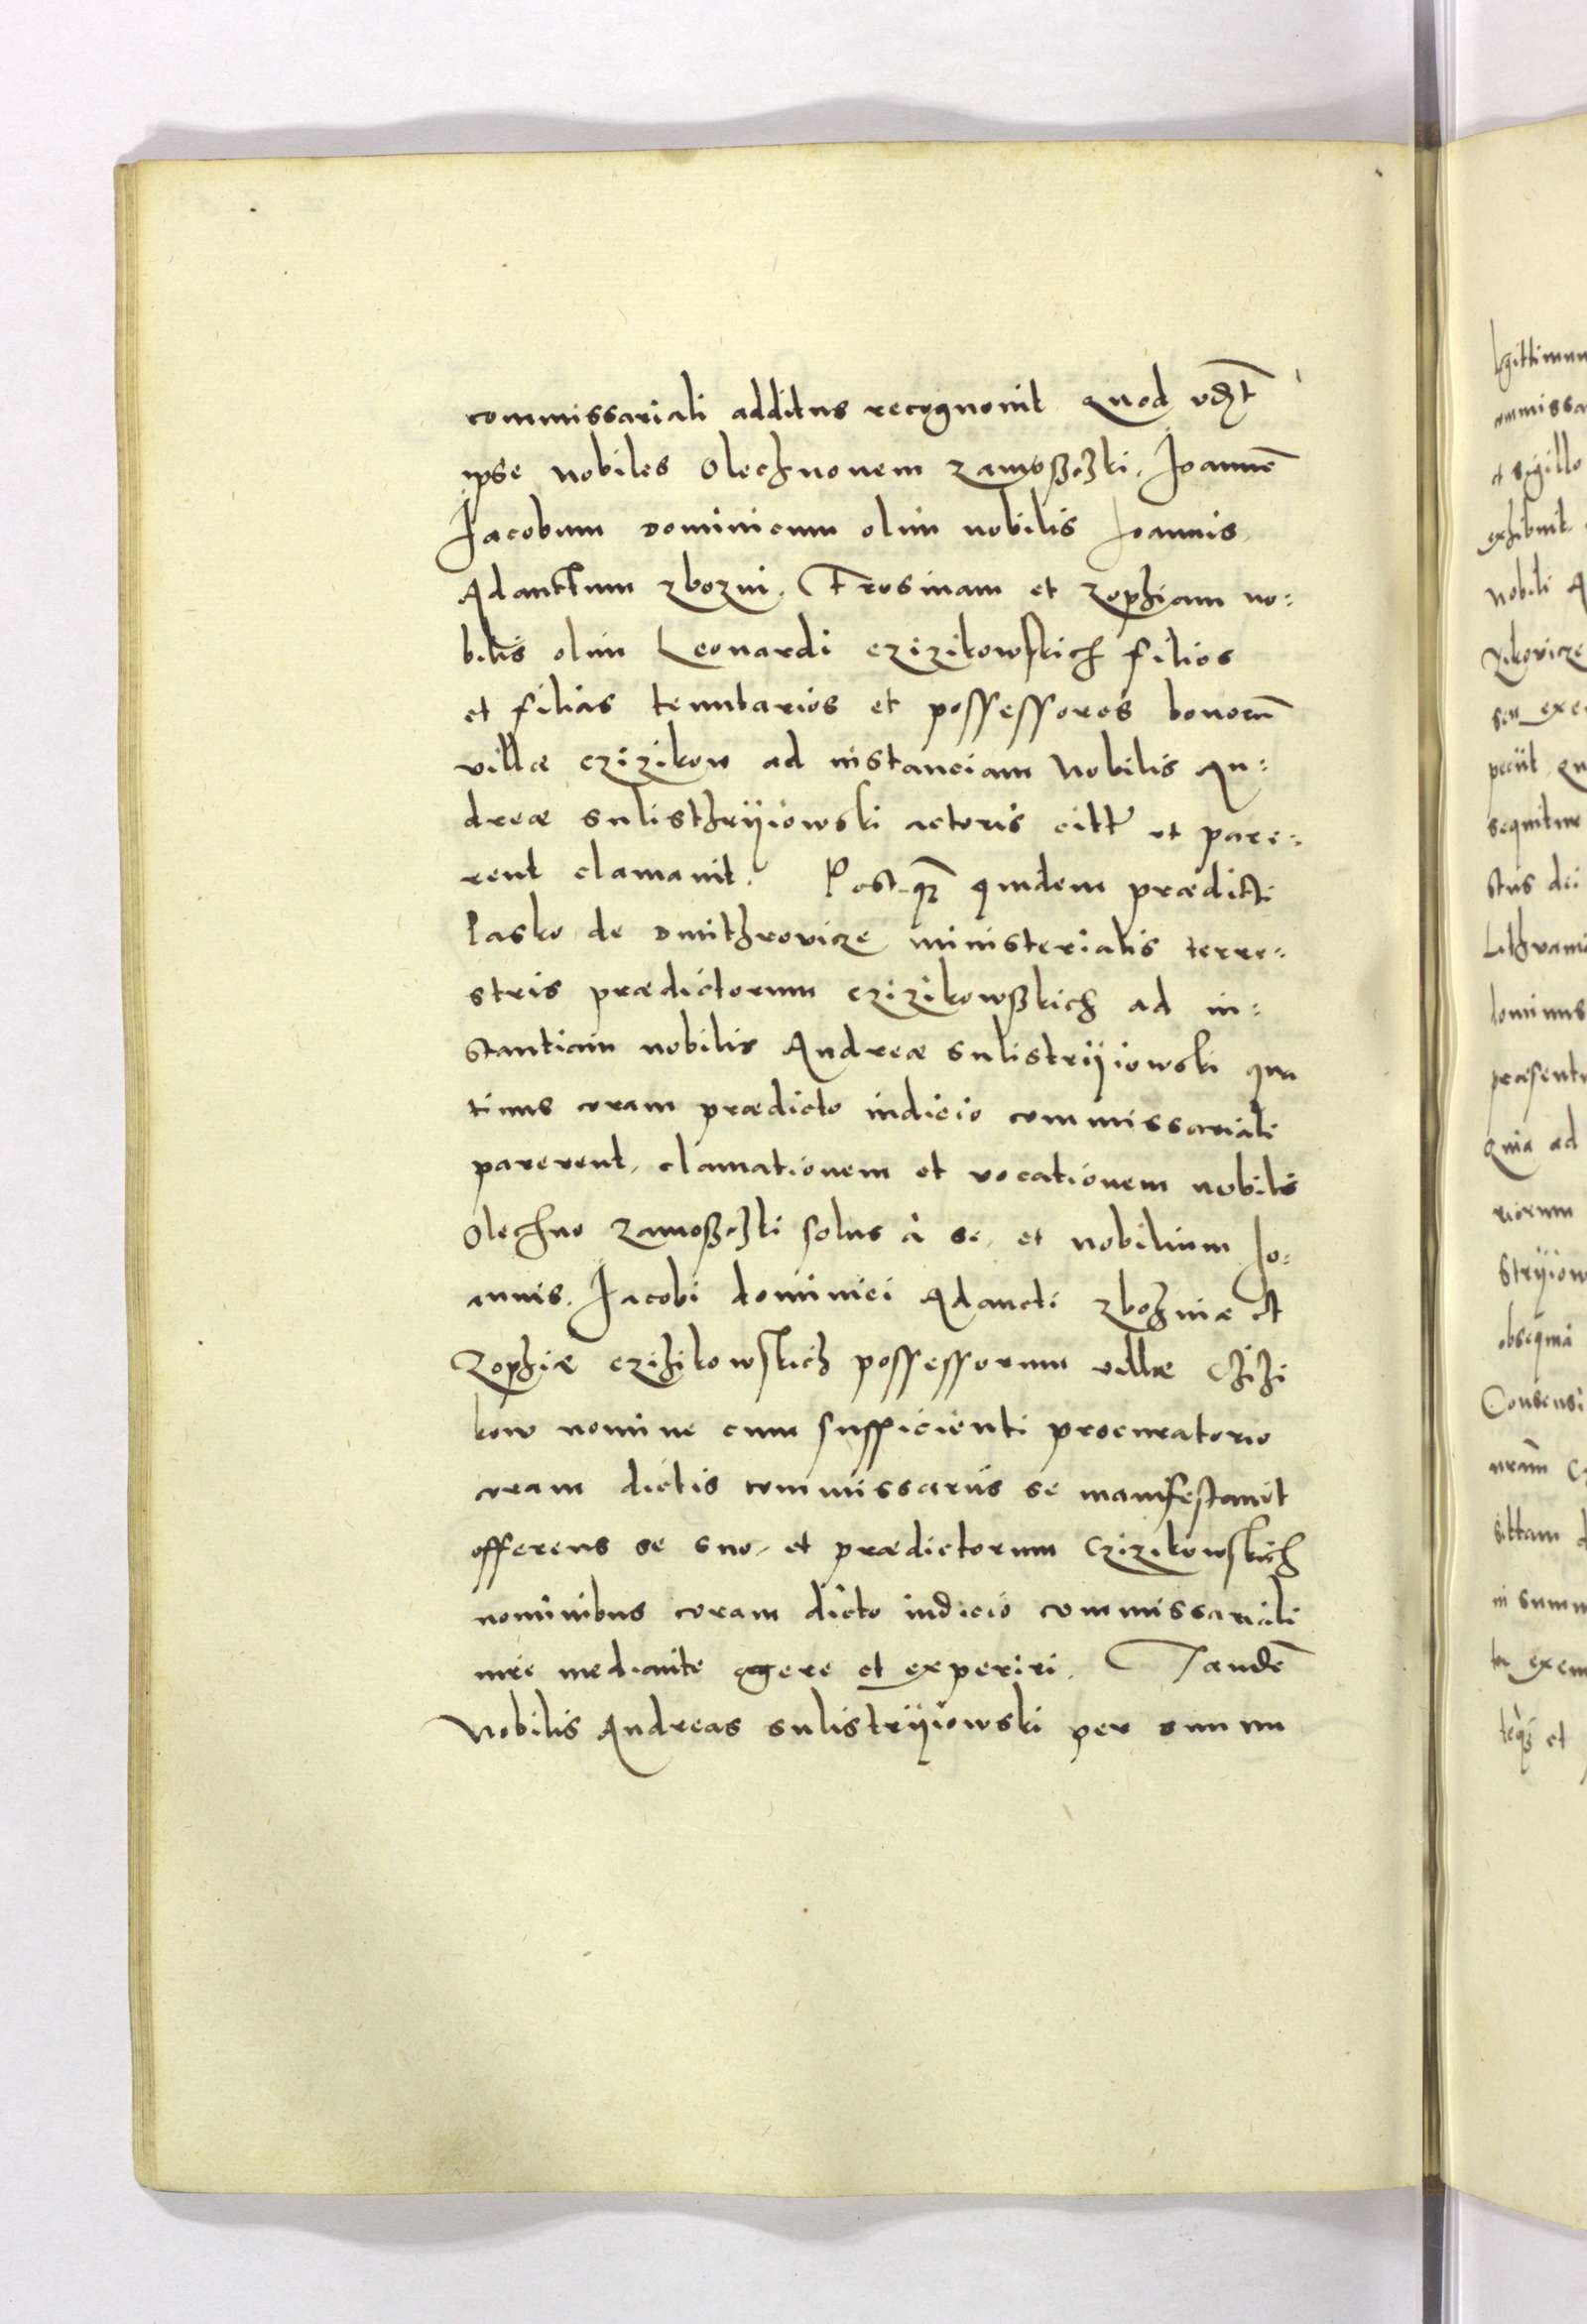 commissariali additus recognouit Quod
ipse nobiles Olechnonem Zamosczki, Joannē
Jacobum Dominicum olim nobilis Joannis
Adanctum Zbozni, Frosinam et Zophiam no=
bilis olim Leonardi Czizikowskich filios
et filias tenutarios et possessores bonorū
villæ Czizikow ad instanciam Nobilis An=
dreæ Sulisthryiowski actoris citt ut pare=
rent clamauit. Post quā quidem prædicti
Pasko de Dmithrovicze ministerialis terre=
stris prædictorum Czizikowskich ad in=
stantiam nobilis Andreæ Sulistryiowski qua
tinus coram prædicto iudicio commissariali
parerent, clamationem et vocationem nobilis
Olechno Zamosczki solus à se, et nobilium Jo=
annis, Jacobi Dominici Adancti Zbozniæ et
Zophiæ Czizikowskich possessorum villæ Czizi
kow nomine cum sufficienti procuratorio
coram dictis commissariis se manifestauit
offerens se suo, et prædictorum Czizikowskich
nominibus coram dicto iudicio commissariali
iure mediante agere et experiri. Tandē
Nobilis Andreas Sulistryiowski per suum
legittimum
ommissa
et sigillo
exhibuit
nobili A
zikovicze
seu exe
peciit qu
sequitur
stus dei
Lithuani
dominus
præsent
Quia ad
riorum
Stryiow
obsequia
Consensi
in summ